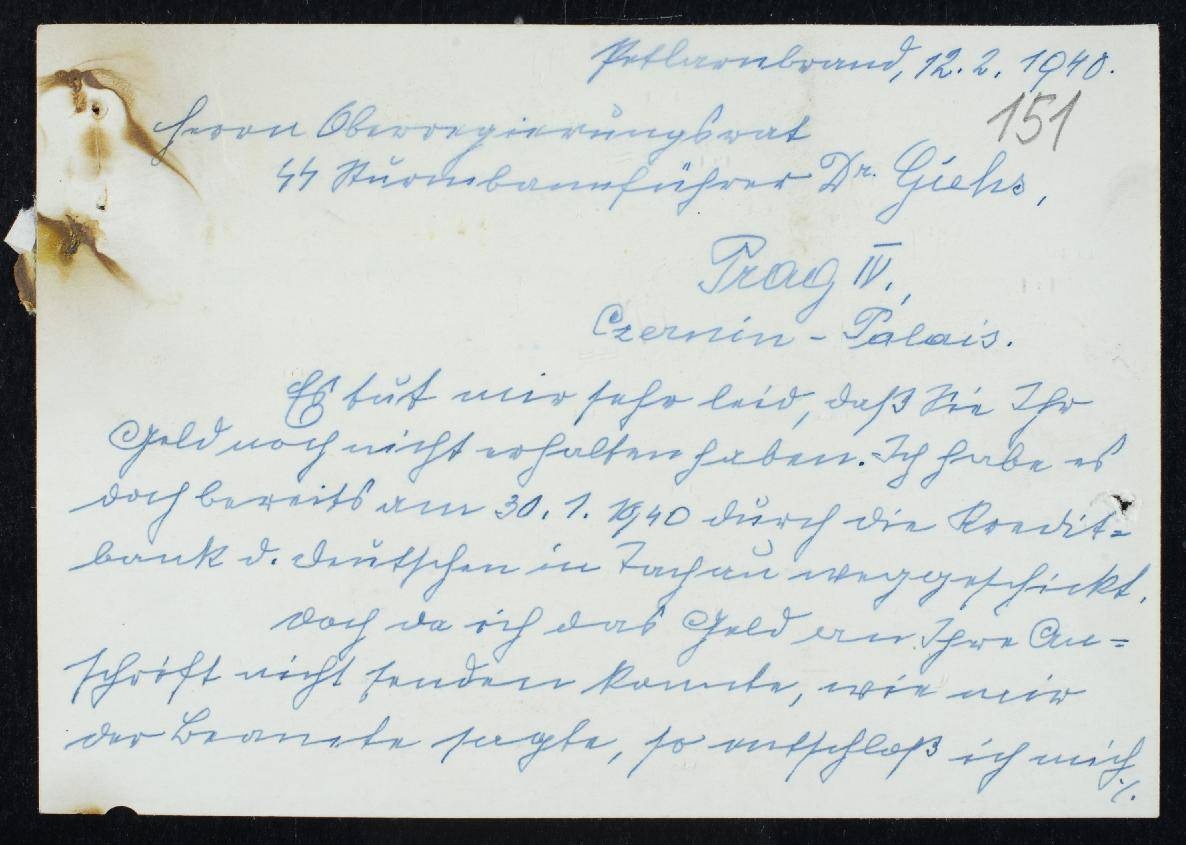 Petlarnbrand, 12.2. 1940.
151
Herrn Oberregierungsrat
SS Sturmbannführer Dr. Gies,
Prag IV.,
Czernin-Palais.
Es tut mir sehr leid, daß Sie Ihr
Geld noch nicht erhalten haben. Ich habe es
doch bereits am 30. 1. 1940 durch die Kredit=
bank d. Deutschen in Tachau weggeschickt.
Doch da ich das Geld an Ihre An=
schrift nicht senden konnte, wie mir
der Beamte sagte, so entschloß ich mich
./.